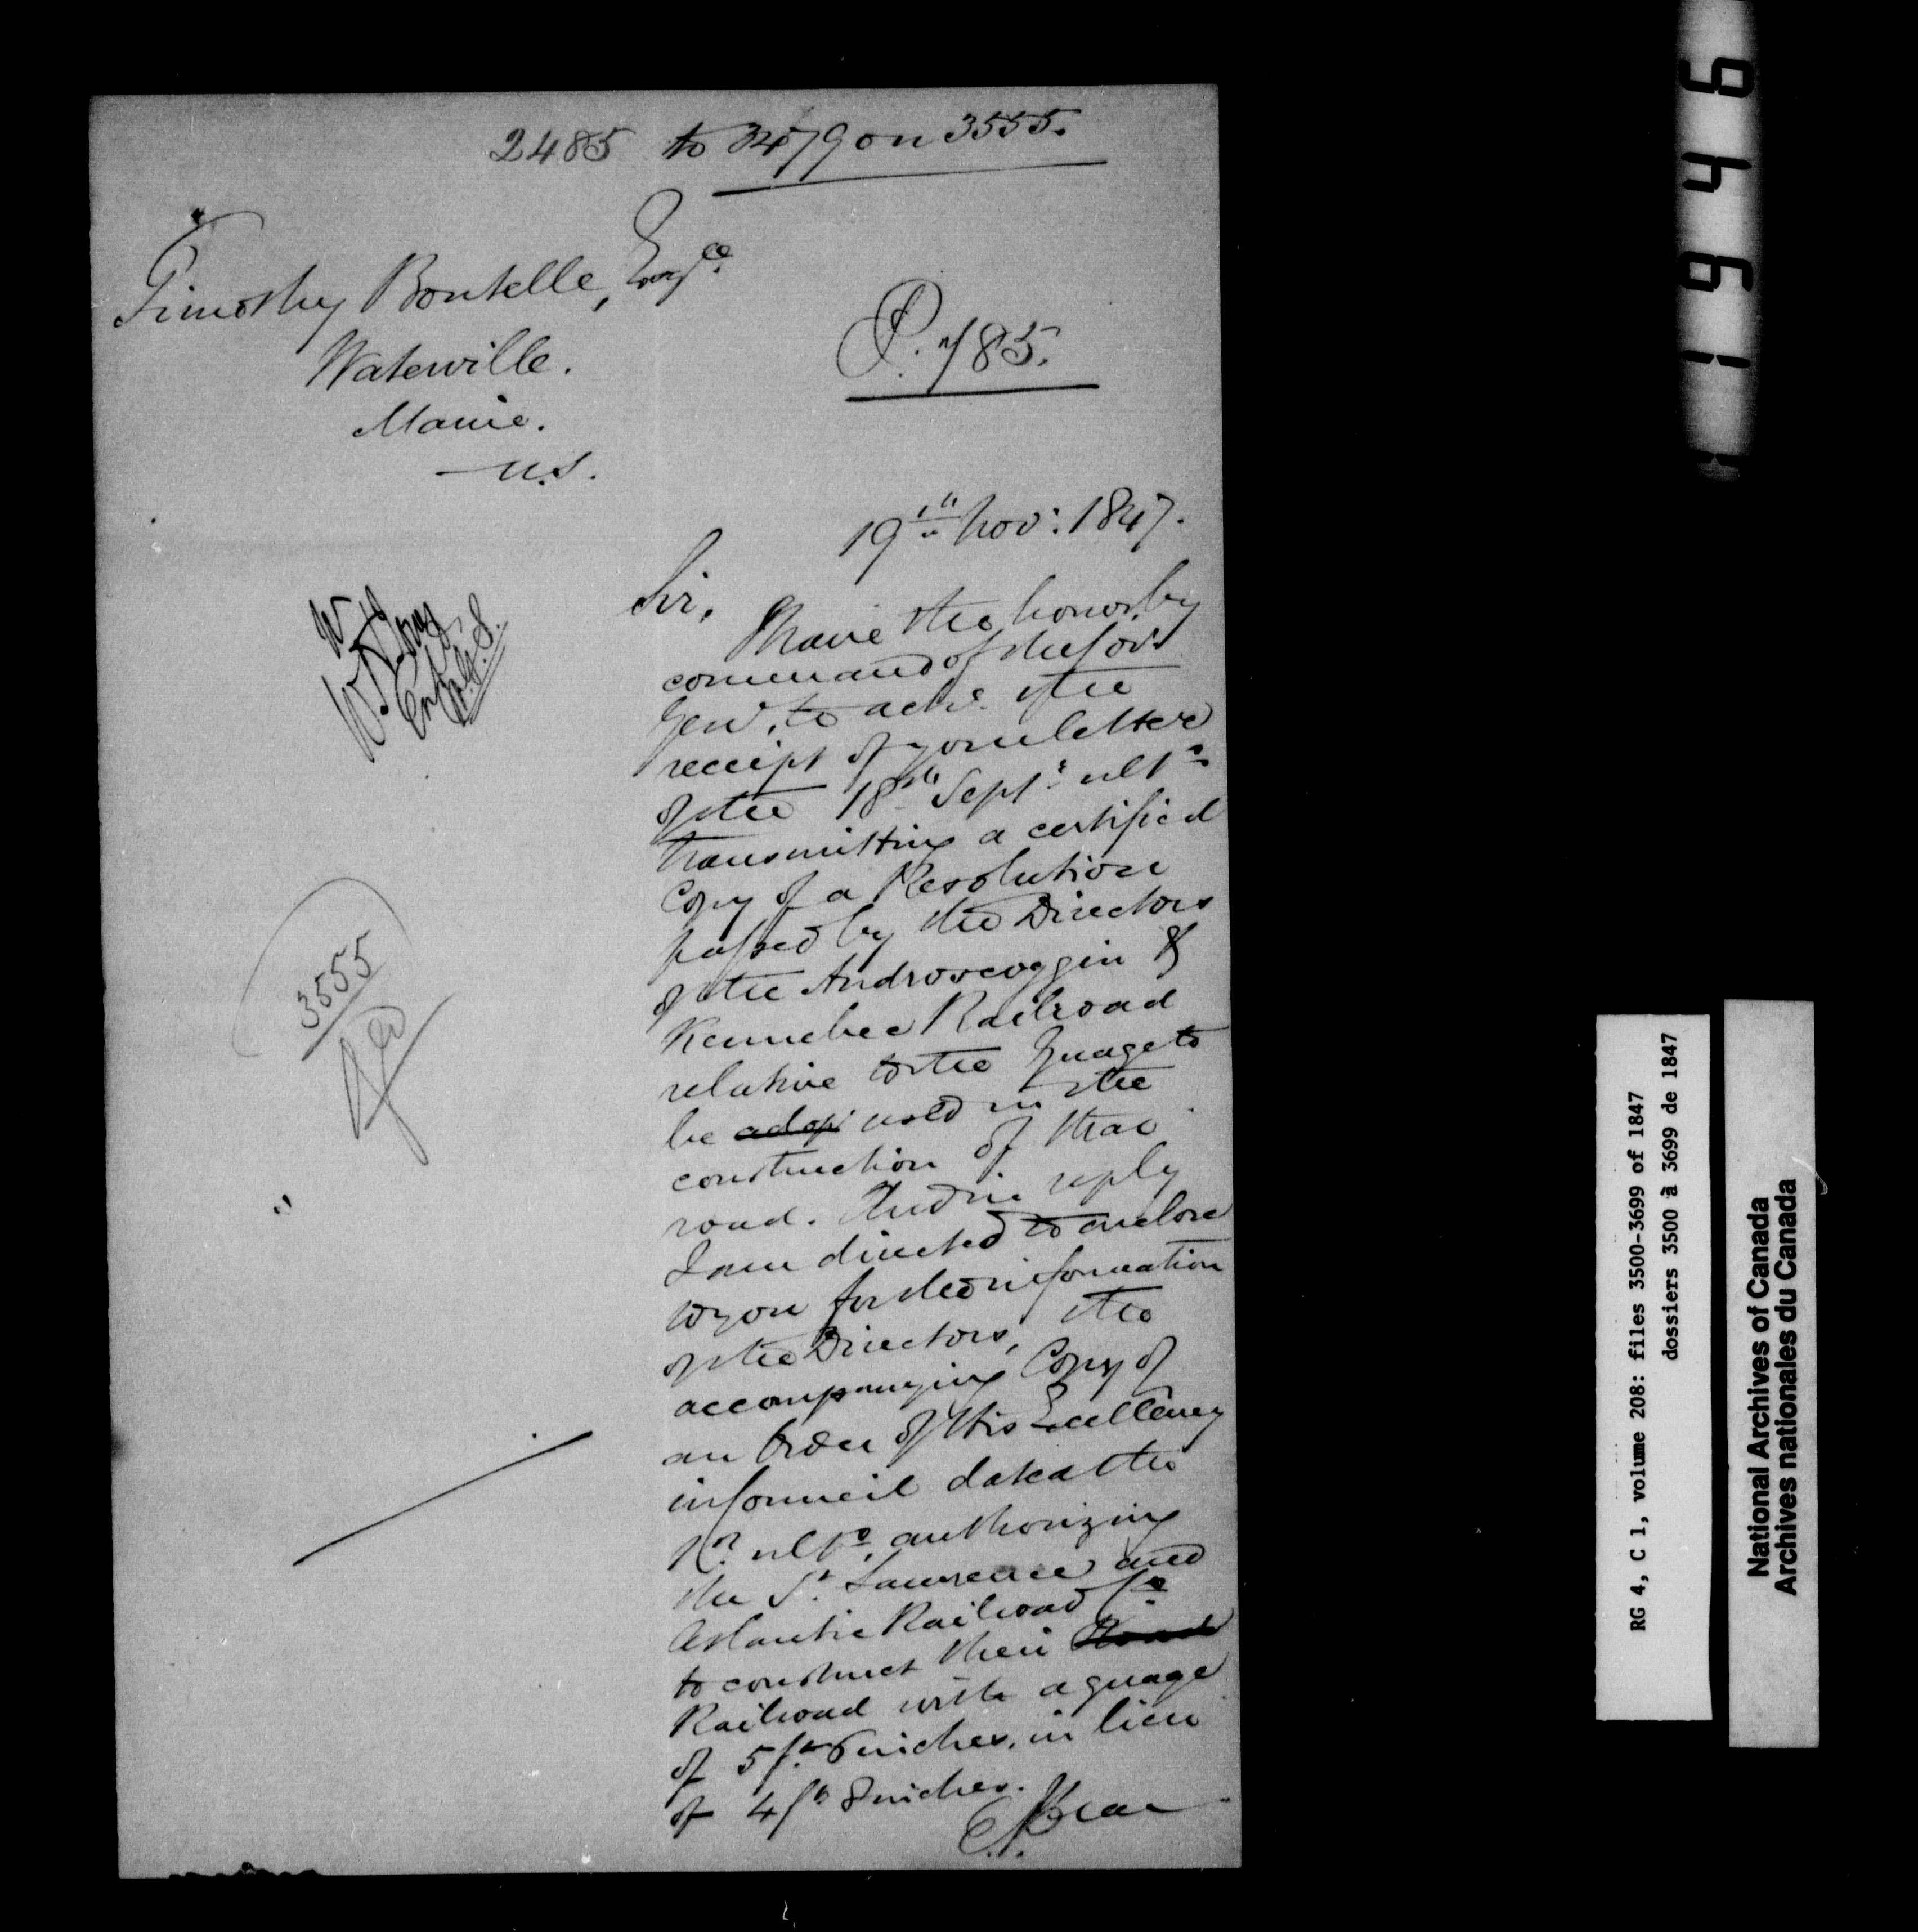 2485 to 3479 on 3555.
Timothy Boutelle, Esqre
Waterville.
Maine.
U.S.
P. 785.
19th Nov: 1847.
Sir,
I have the honor, by
command of the Gov:
Genl, to ackn. the
receipt of your letter
of the 18th Septr. ulto
transmitting a certified
Copy of a Resolution
passed by the Directors
of the Androscoggin &
Kennebec Railroad
relative to the Guage to
be adop used in the
construction of that
road. And in reply
I am directed to enclose
to you for the information
of the Directors, the
accompanying Copy of
an Order of His Excellency
in Council dated the
ulto, authorizing
the St. Lawrence and
Atlantic Railroad Co
to construct their Road
Railroad with a guage
of 5 ft 6 inches, in lieu
of 4 ft 8 inches.
3555
19461
RG 4, C 1, volume 208: files 3500-3699 of 1847
dossiers 3500 à 3699 de 1847
National Archives of Canada
Archives nationales du Canada